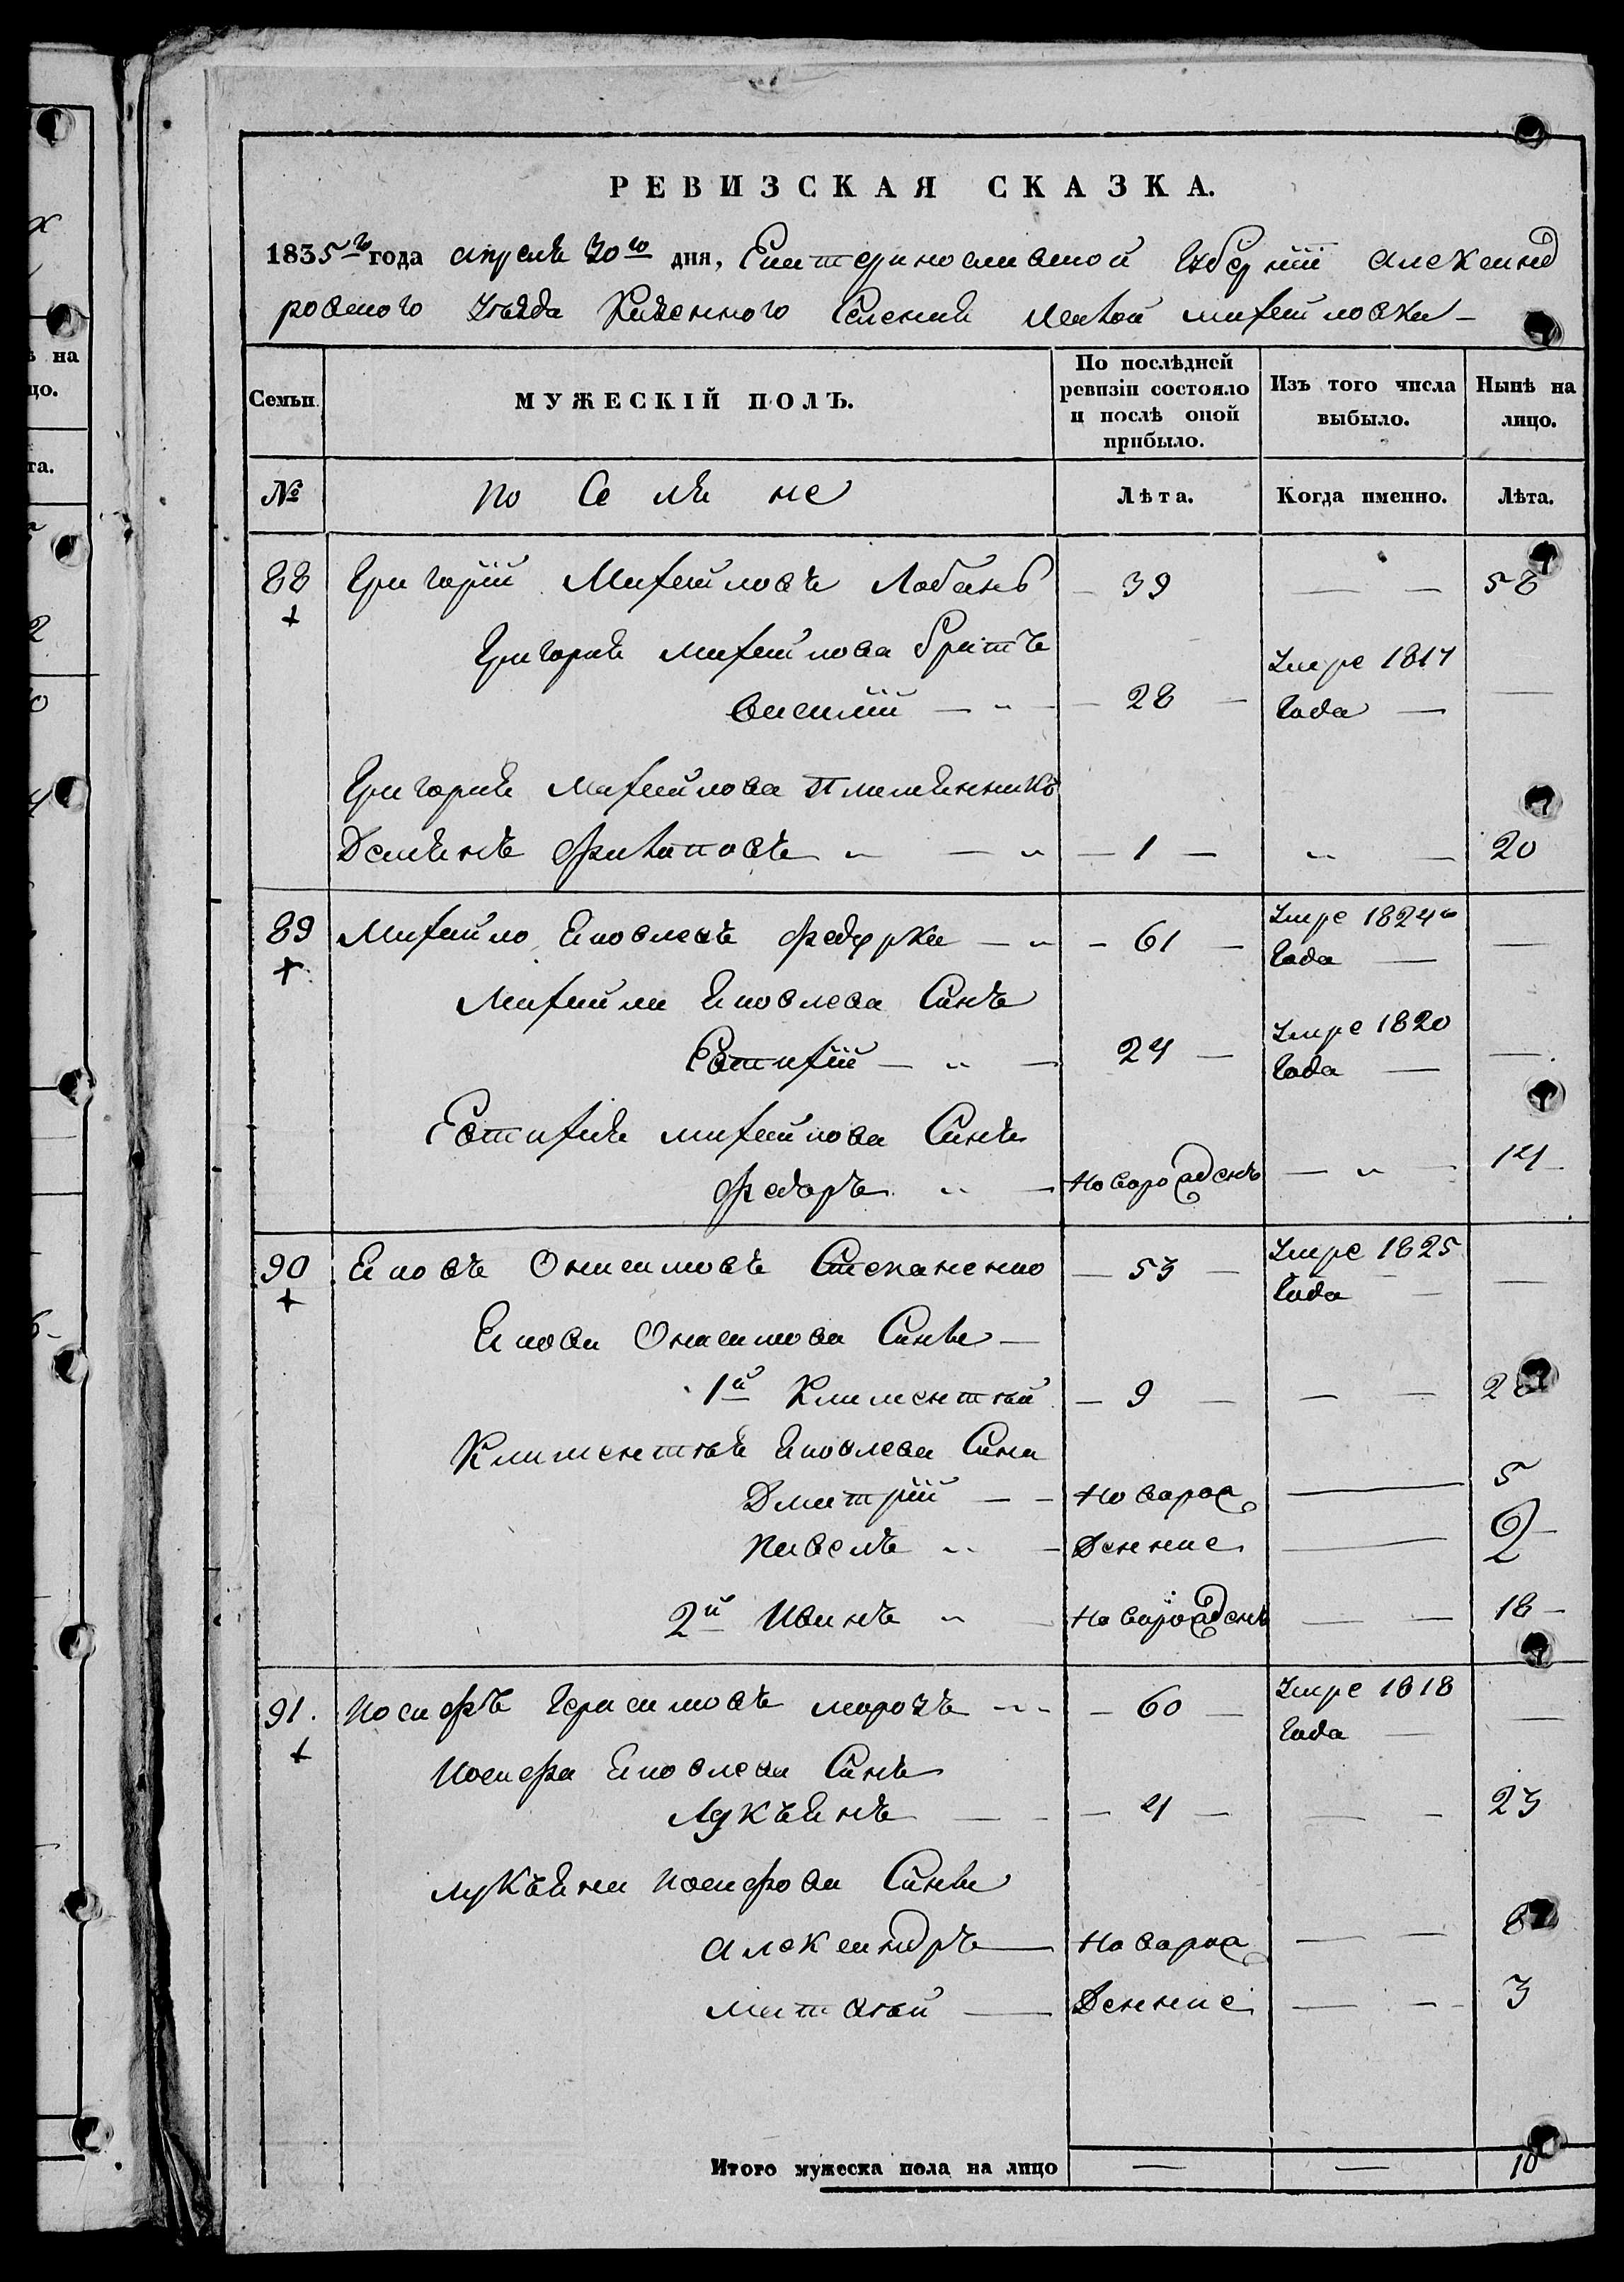 РЕВИЗСКАЯ СКАЗКА.
1835го года апреля 30го дня, Екатеринославской Губернiи Александ
ровского Уезда Казенного Селения Малой михайловки
Семьи. МУЖЕСКIЙ ПОЛЪ. По послѣдней ревизiи состояло и послѣ оной прибыло. Изъ того числа выбыло. Нынѣ на лицо.
№ по Се ля не Лѣта. Когда именно. Лѣта.
88 Григорiй Михайловъ Лобань 39 — 58
Григория михайлова братъ
василiй 28 Умре 1817 Года —
Григория михайлова Племянникъ
Демянъ филиповъ 1 20
89 Михайло Яковлевъ федурка 61 Умре 1824го Года —
Михайла Яковлева Синъ
Евтифiй 24 Умре 1820 Года —
Евтифия михайлова Синъ
федоръ Новорожденъ 14
90 Яковъ Онисимовъ Степаненко 53 Умре 1825 Года —
Якова Онисимова Сины
1й Климентий 9 28
Климентия Яковлева Сини
Дмитрiй Новорож 5
Павелъ Денние 2
2й Иванъ Новорожденъ 18
91. Иосифъ Герасимовъ морозъ 60 Умре 1818 Года —
Иосифа Яковлева Синъ
Лукъянъ 4 23
Лукъяна Иосифова Сины
Александръ Новорож 8
Матвий Денние 3
Итого мужеска пола на лицо — — 10
ѣ на
цо.
та.